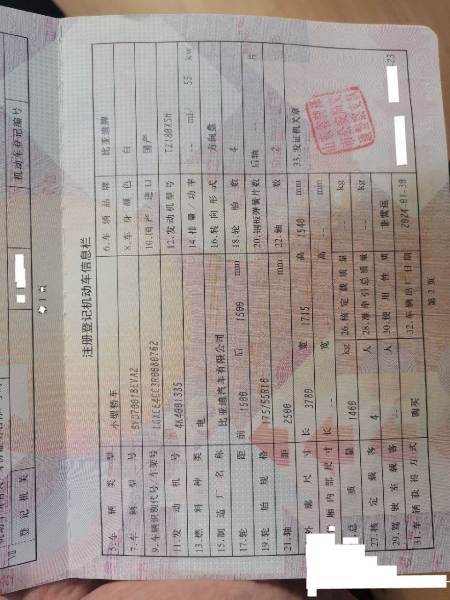 机动车登记编号
登记机关
第 1 页
注册登记机动车信息栏
5.车辆类型 小型轿车 6.车辆品牌 比亚迪牌
7.车辆型号 BYD7001BEVA2 8.车身颜色 白
9.车辆识别代号/车架号 10.国产/进口 国产
11.发动机号 4K4001335 12.发动机型号 TZ180XSH
13.燃料种类 电 14.排量/功率 -- ml/ 55 kw
15.制造厂名称 比亚迪汽车有限公司 16.转向形式 方向盘
17.轮距 前 1500 后 1500 mm 18.轮胎数 4
19.轮胎规格 175/55R16 20.钢板弹簧片数 后轴 -- 片
21.轴距 2500 mm 22.轴数
外廓尺寸 长 3780 宽 1715 高 1540 mm 33.发证机关章
厢内部尺寸 长 -- 宽 -- 高 -- mm
总质量 1460 kg 26.核定载质量 -- kg
27.核定载客 4 人 28.准牵引总质量 -- kg
29.驾驶室载客 -- 人 30.使用性质 非营运
31.车辆获得方式 购买 32.车辆出厂日期 2024-01-30
-23